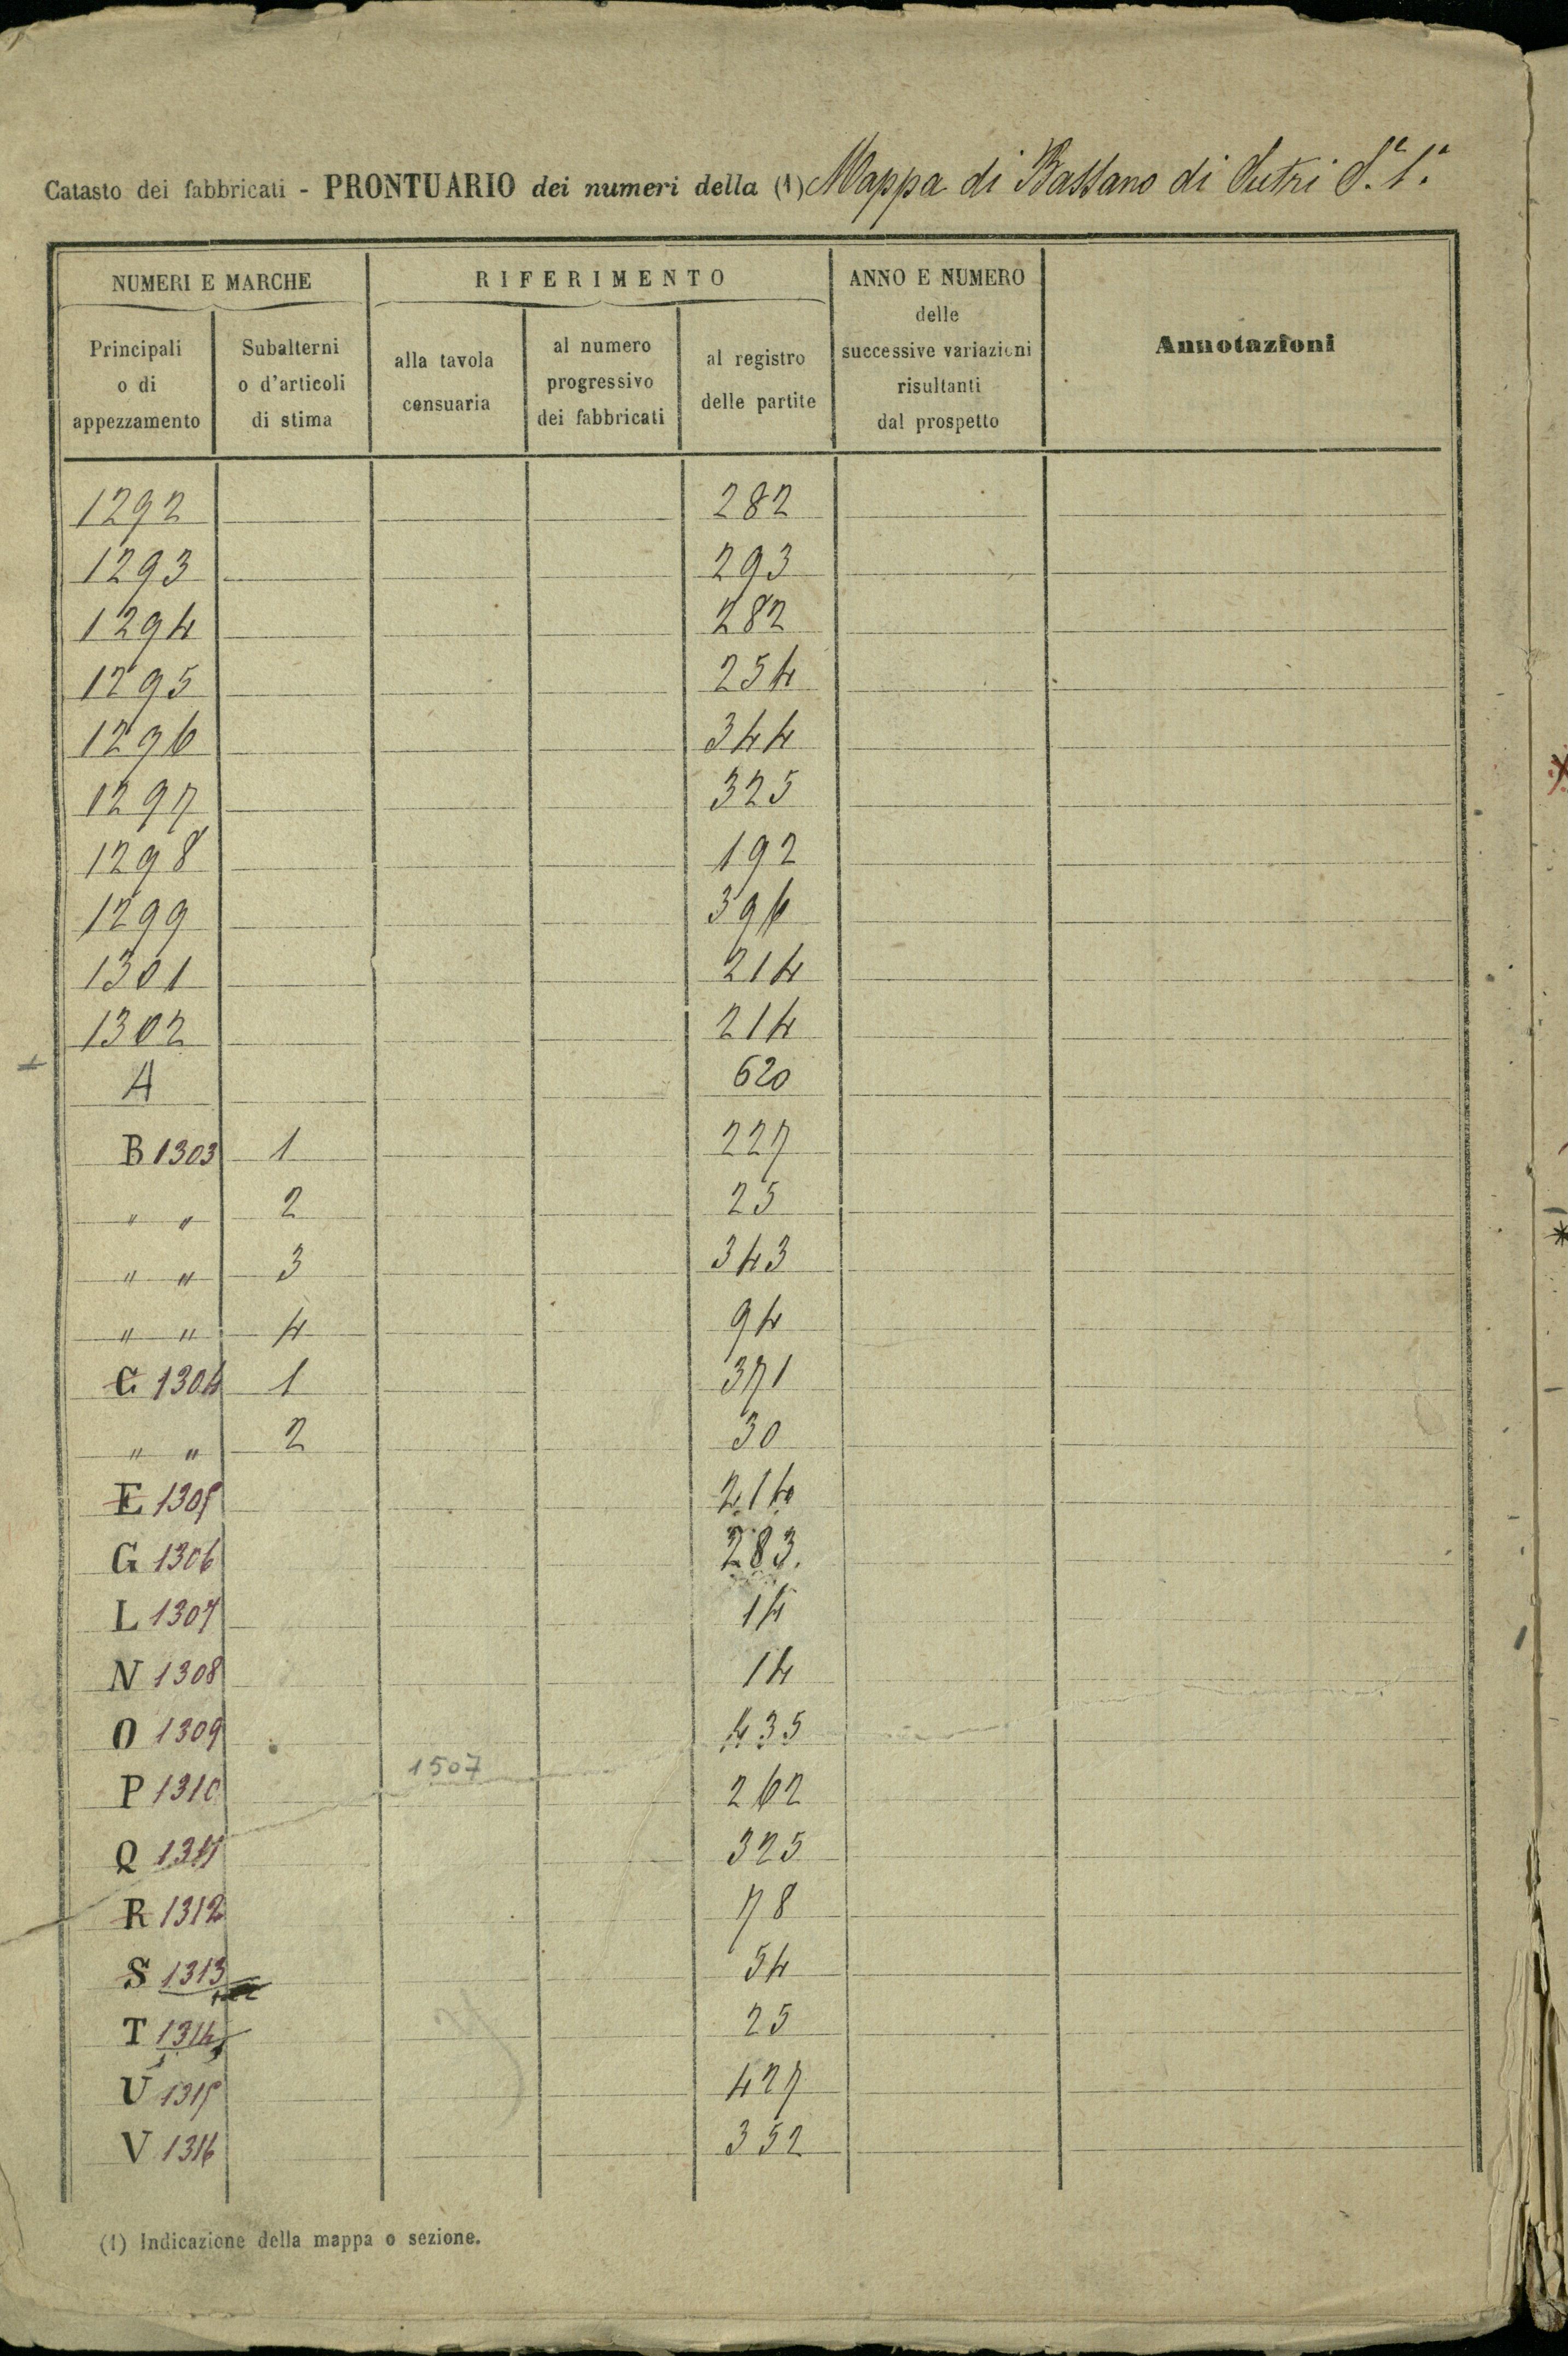 Catasto dei fabbricati - PRONTUARIO dei numeri della (1) Mappa di Bassano di Sutri S.ª 1.ª
NUMERI E MARCHE
RIFERIMENTO
ANNO E NUMERO delle successive variazioni risultanti dal prospetto
Annotazioni
Principali o di appezzamento
Subalterni o d'articoli di stima
alla tavola censuaria
al numero progressivo dei fabbricati
al registro delle partite
1292 282
1293 293
1294 282
1295 254
1296 344
1297 325
1298 192
1299 396
1301 214
1302 214
A 620
B 1303 1 227
" " 2 25
" " 3 343
" " 4 94
C 1304 1 371
" " 2 30
E 1305 214
G 1306 283.
L 1307 14
N 1308 14
O 1309 435
1507
P 1310 262
Q 1311 325
R 1312 78
S 1313 54
T 1314 25
U 1315 427
V 1316 352
(1) Indicazione della mappa o sezione.